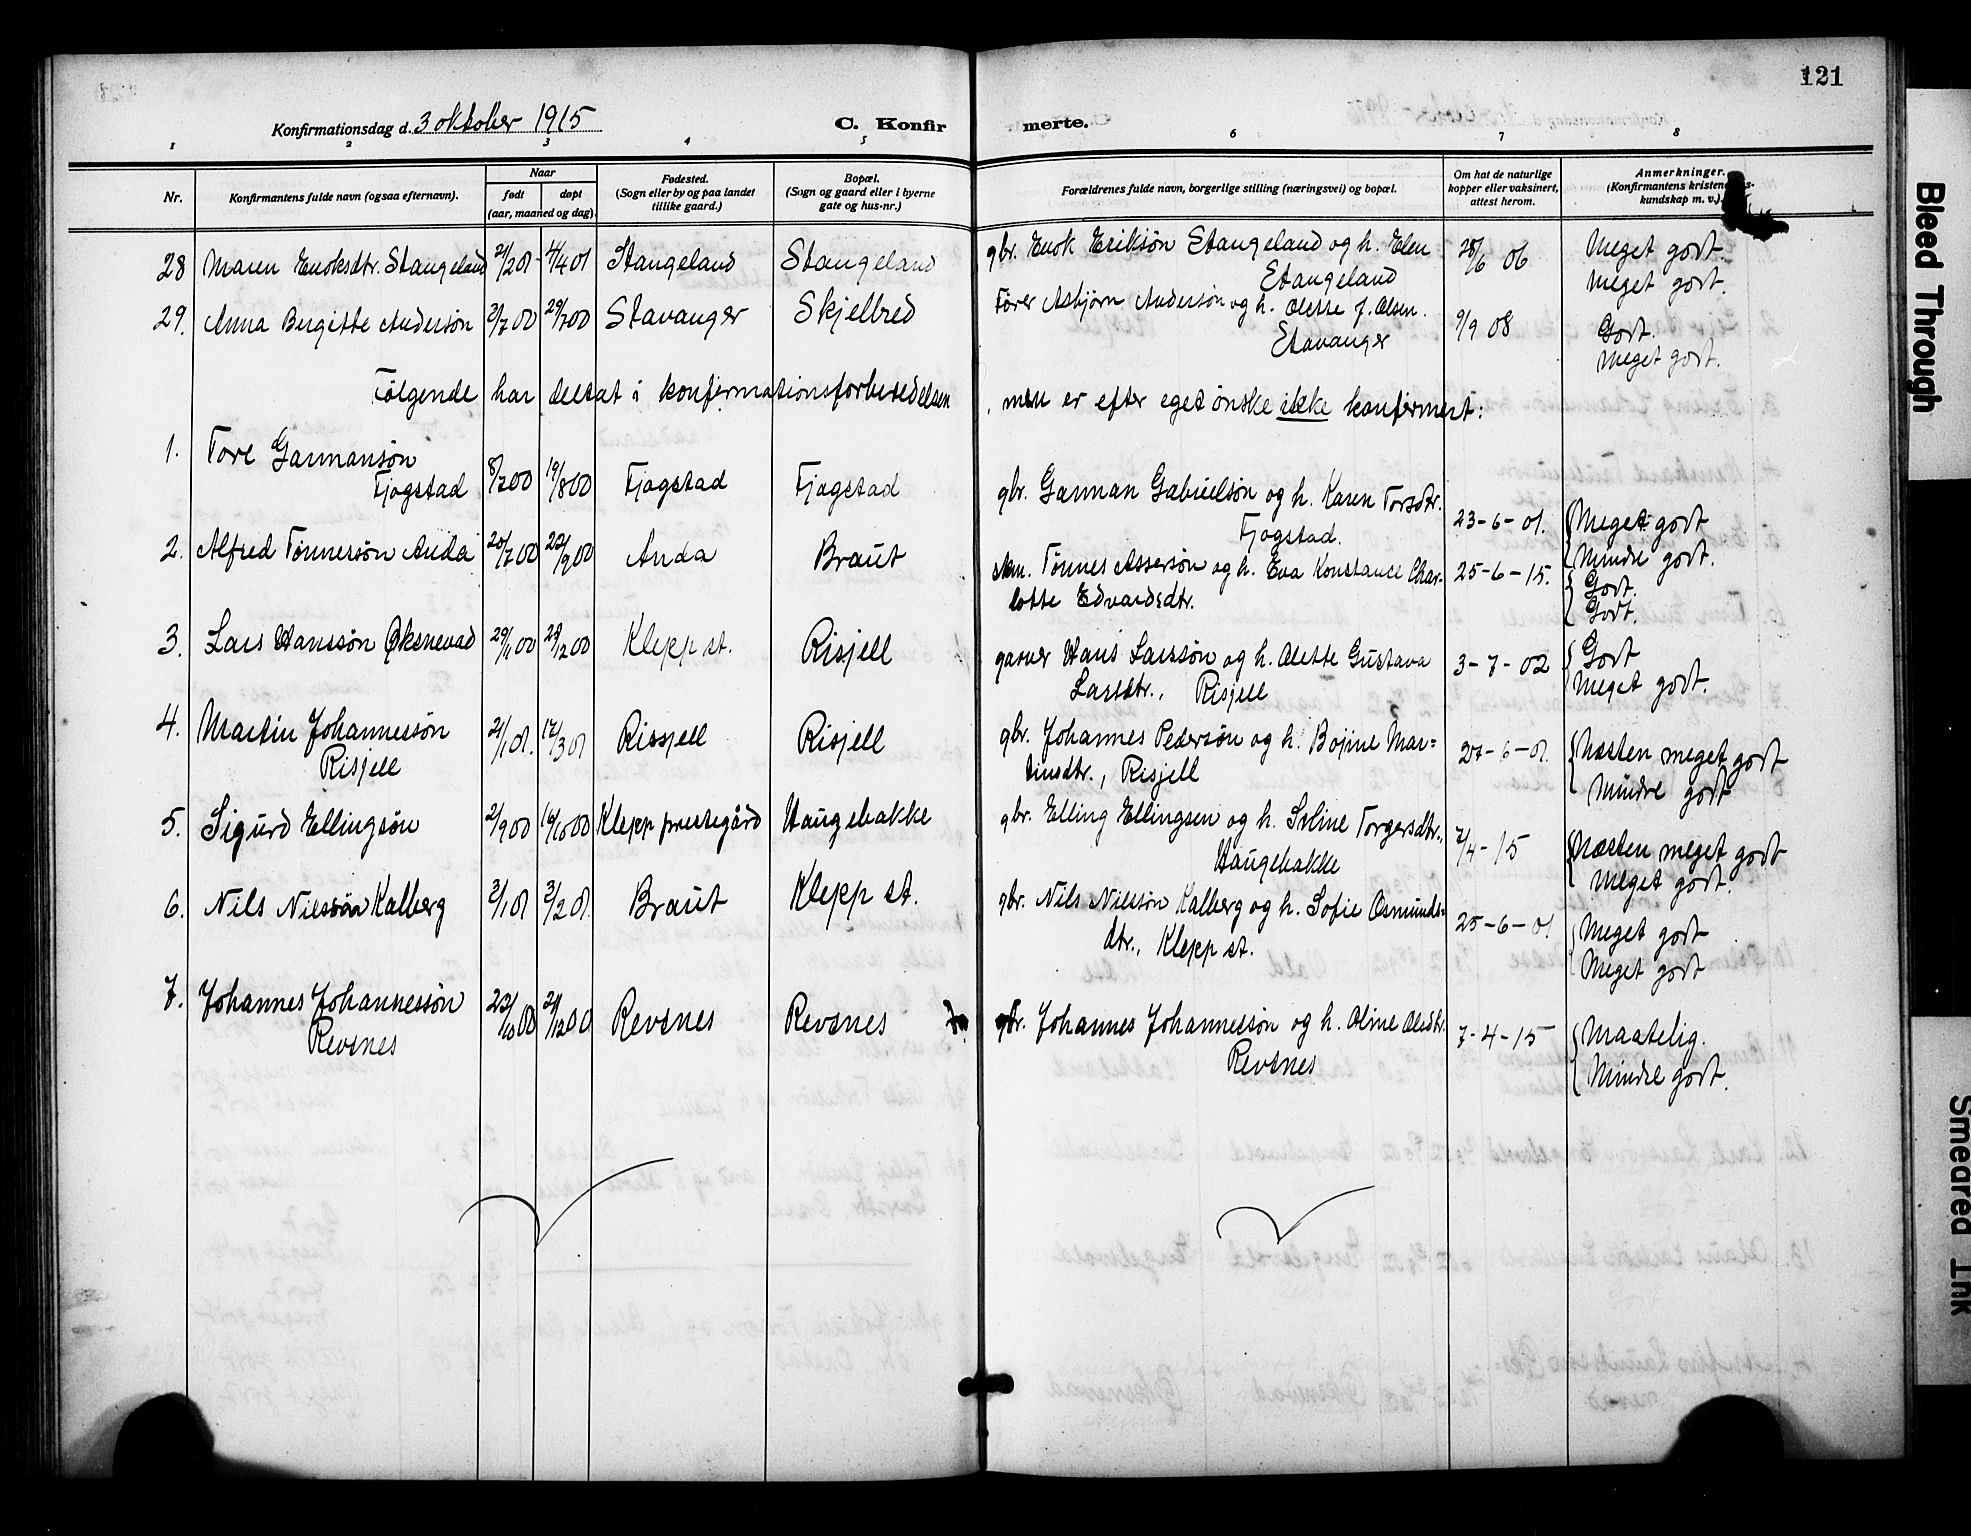 121
Konfirmationsdag d. 3 oktober 1915
C. Konfirmerte.
1 2 3 4 5 6 7 8
Nr. Konfirmantens fulde navn (ogsaa efternavn). Naar født døpt (aar, maaned og dag). Fødested. (Sogn eller by og paa landet tillike gaard.) Bopæl. (Sogn og gaard eller i byerne gate og hus-nr.) Forældrenes fulde navn, borgerlige stilling (næringsvei) og bopæl. Om hat de naturlige kopper eller vaksinert, attest herom. Anmerkninger. (Konfirmantens kundskap m. v.)
28 Maren Enoksdtr. Stangeland 21/2 01 4/4 01 Stangeland Stangeland gbr. Enok Eriksøn Stangeland og h. Elen 28/6 06 Meget godt.
Stangeland Meget godt.
29. Anna Bergitte Andersøn 2/7 00 29/7 00 Stavanger Skjelbred Fører Asbjørn Andersøn og h. Olette f. Olsen. 9/9 08 Godt.
Stavanger Meget godt.
Følgende har deltat i konfirmationsforberedelsen, men er efter eget ønske ikke konfirmert:
1. Tore Garmansøn
Fjogstad 8/7 00 19/8 00 Fjogstad Fjogstad gbr. Garman Gabrielsøn og h. Karen Torsdtr. 23-6-01. Meget godt
Fjogstad. Mindre godt.
2. Alfred Tønnersøn Anda 20/7 00 22/9 00 Anda Braut Tønnes Assersøn og h. Eva Konstance Char- 25-6-15. Godt.
lotte Edvardsdtr. Godt.
3. Lars Hanssøn Øksnevad 29/11 00 28/12 00 Klepp st. Risjell garver Hans Larssøn og h. Olette Gustava 3-7-02 Godt
Larsdtr., Risjell Meget godt.
4. Martin Johannessøn 21/1 01. 17/3 01 Rissjell Risjell gbr. Johannes Pedersøn og h. Bojine Mar= 27-6-01. Næsten meget godt
Risjell tinsdtr., Risjell Mindre godt
5. Sigurd Ellingsøn 2/9 00 14/10 00 Klepp prestegård Haugebakke gbr. Elling Ellingsen og h. Seline Torgersdtr., 7/4-15 Næsten meget godt
Haugebakke Meget godt.
6. Nils Nilssøn Kalberg 3/1 01 3/2 01. Braut Klepp st. gbr. Nils Nilssøn Kalberg og h. Sofie Osmunds= 25-6-01 Meget godt
dtr., Klepp st. Meget godt
7. Johannes Johannessøn 23/10 00 26/12 00 Revsnes Revsnes gbr. Johannes Johannessøn og h. Oline Olsdtr. 7-4-15 Maatelig.
Revsnes Revsnes Mindre godt.
Bleed Through
Smeared Ink